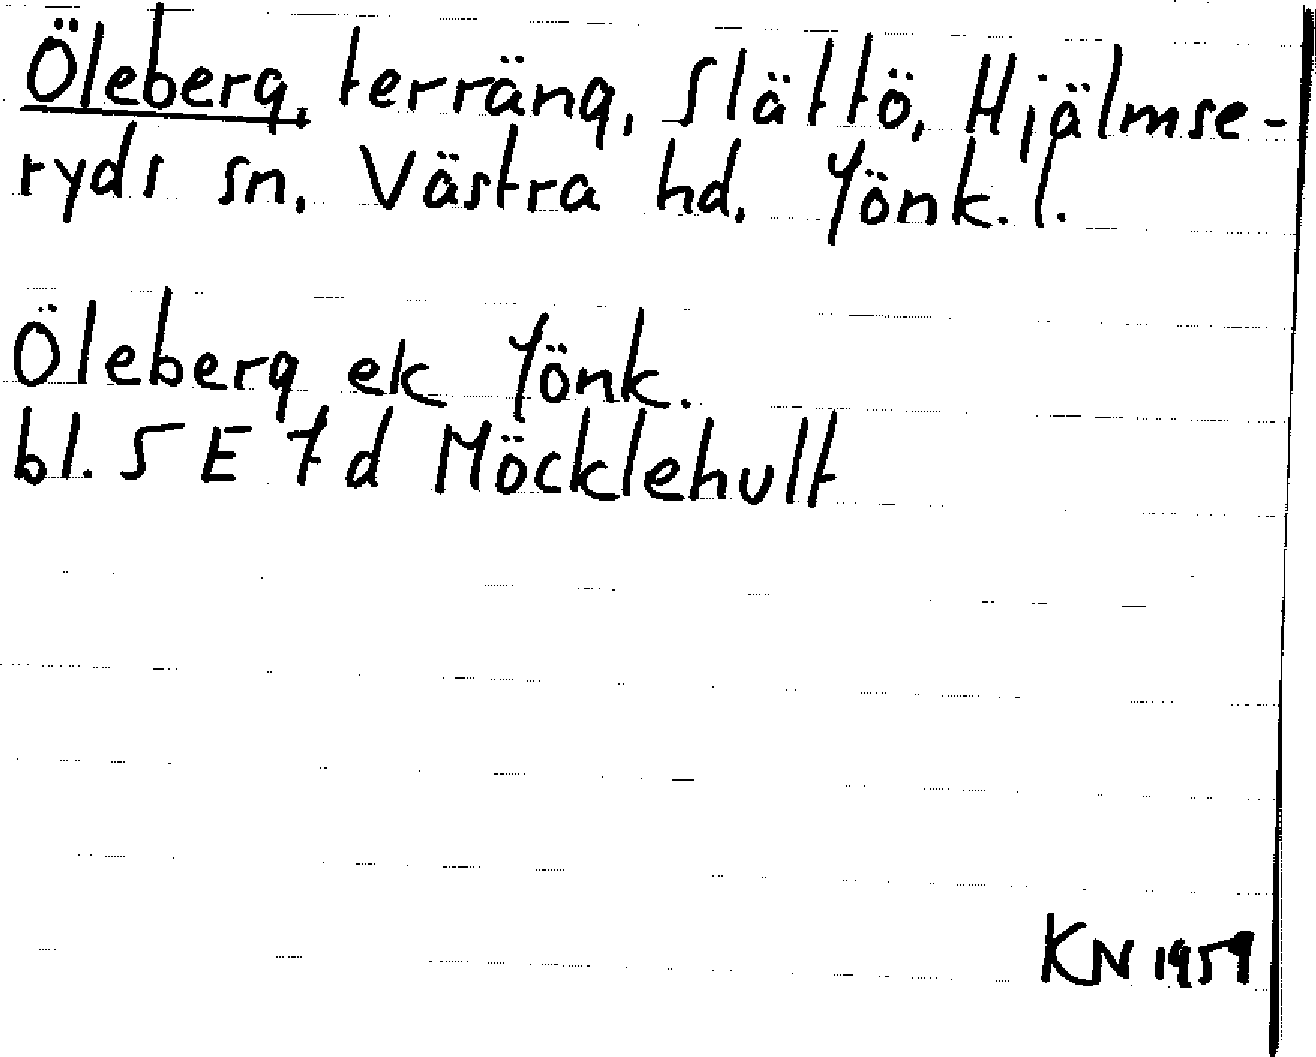 Öleberg, terräng, Slättö, Hjälmse-
ryds sn. Västra hd. Jönk. l.
Öleberg ek Jönk.
bl. 5 E 7 d Möcklehult
KN 1959